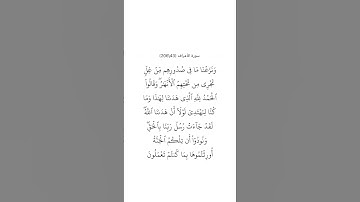 سورة الأعراف (43|206)
وَنَزَعْنَا مَا فِى صُدُورِهِم مِّنْ غِلٍّ
تَجْرِى مِن تَحْتِهِمُ ٱلْأَنْهَٰرُ ۖ وَقَالُوا۟
ٱلْحَمْدُ لِلَّهِ ٱلَّذِى هَدَىٰنَا لِهَٰذَا وَمَا
كُنَّا لِنَهْتَدِىَ لَوْلَآ أَنْ هَدَىٰنَا ٱللَّهُ ۖ
لَقَدْ جَآءَتْ رُسُلُ رَبِّنَا بِٱلْحَقِّ ۖ
وَنُودُوٓا۟ أَن تِلْكُمُ ٱلْجَنَّةُ
أُورِثْتُمُوهَا بِمَا كُنتُمْ تَعْمَلُونَ